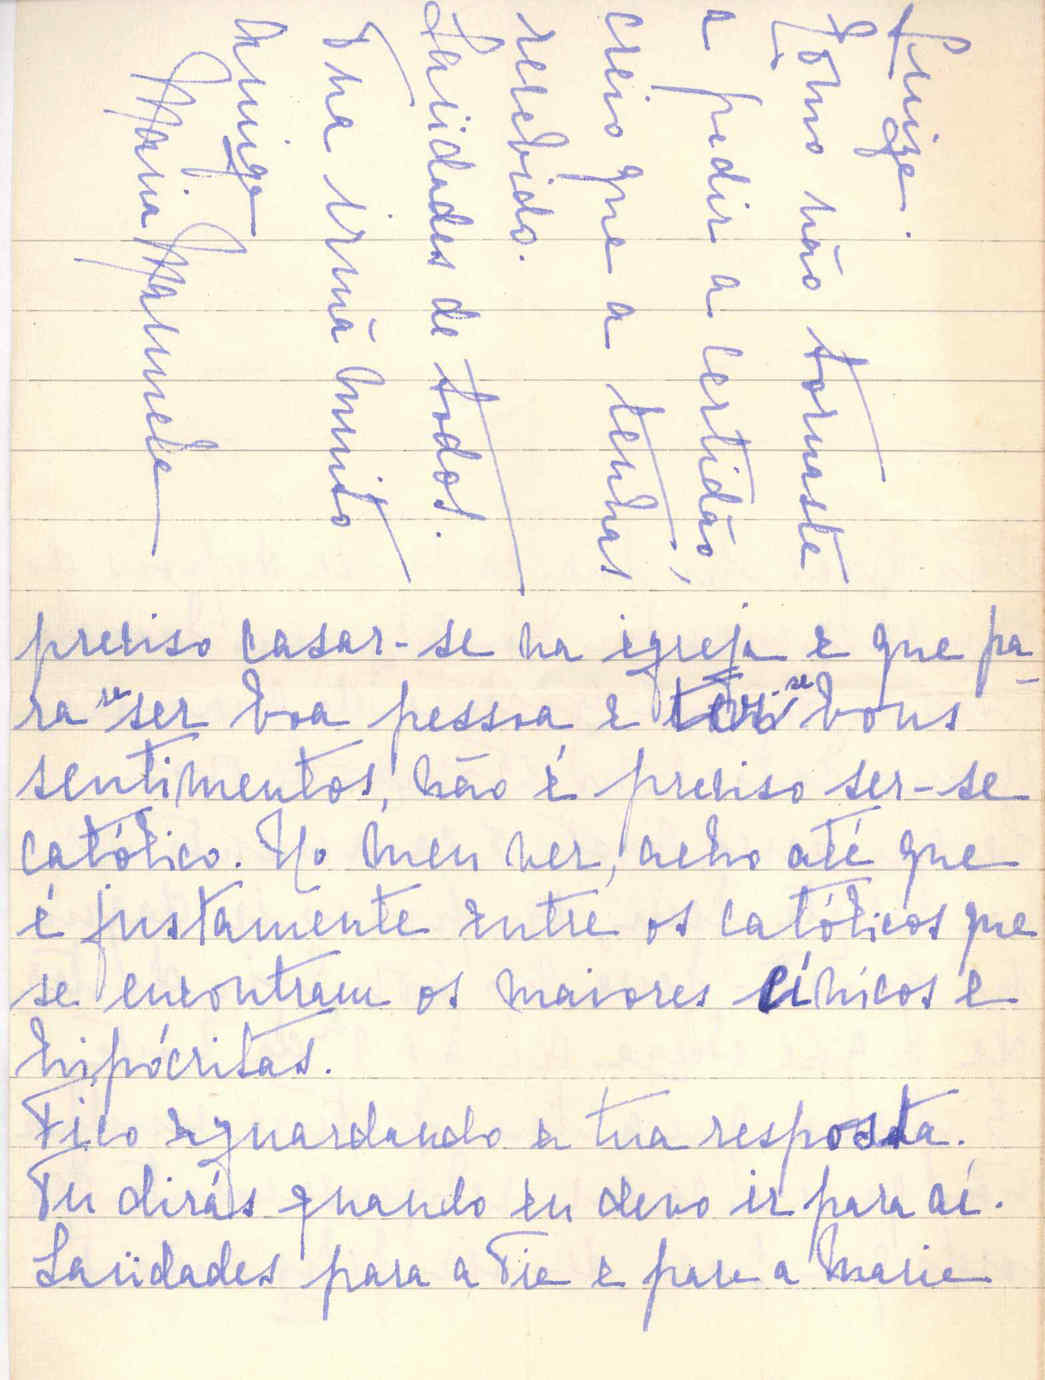 preciso casar-se na igreja e que pa-
ra se ser boa pessoa e ter-se bons
sentimentos, não é preciso ser-se
católico. No meu ver, acho até que
é justamente entre os católicos que
se encontram os maiores cínicos e
hipócritas.
Fico aguardando a tua resposta.
Tu dirás quando eu devo ir para aí.
Saüdades para a Tia e para a Maria
Luiza.
Como não tornaste
a pedir a certidão,
creio que a tenhas
recebido.
Saüdades de todos.
Tua irmã muito
amiga
Maria Manuela